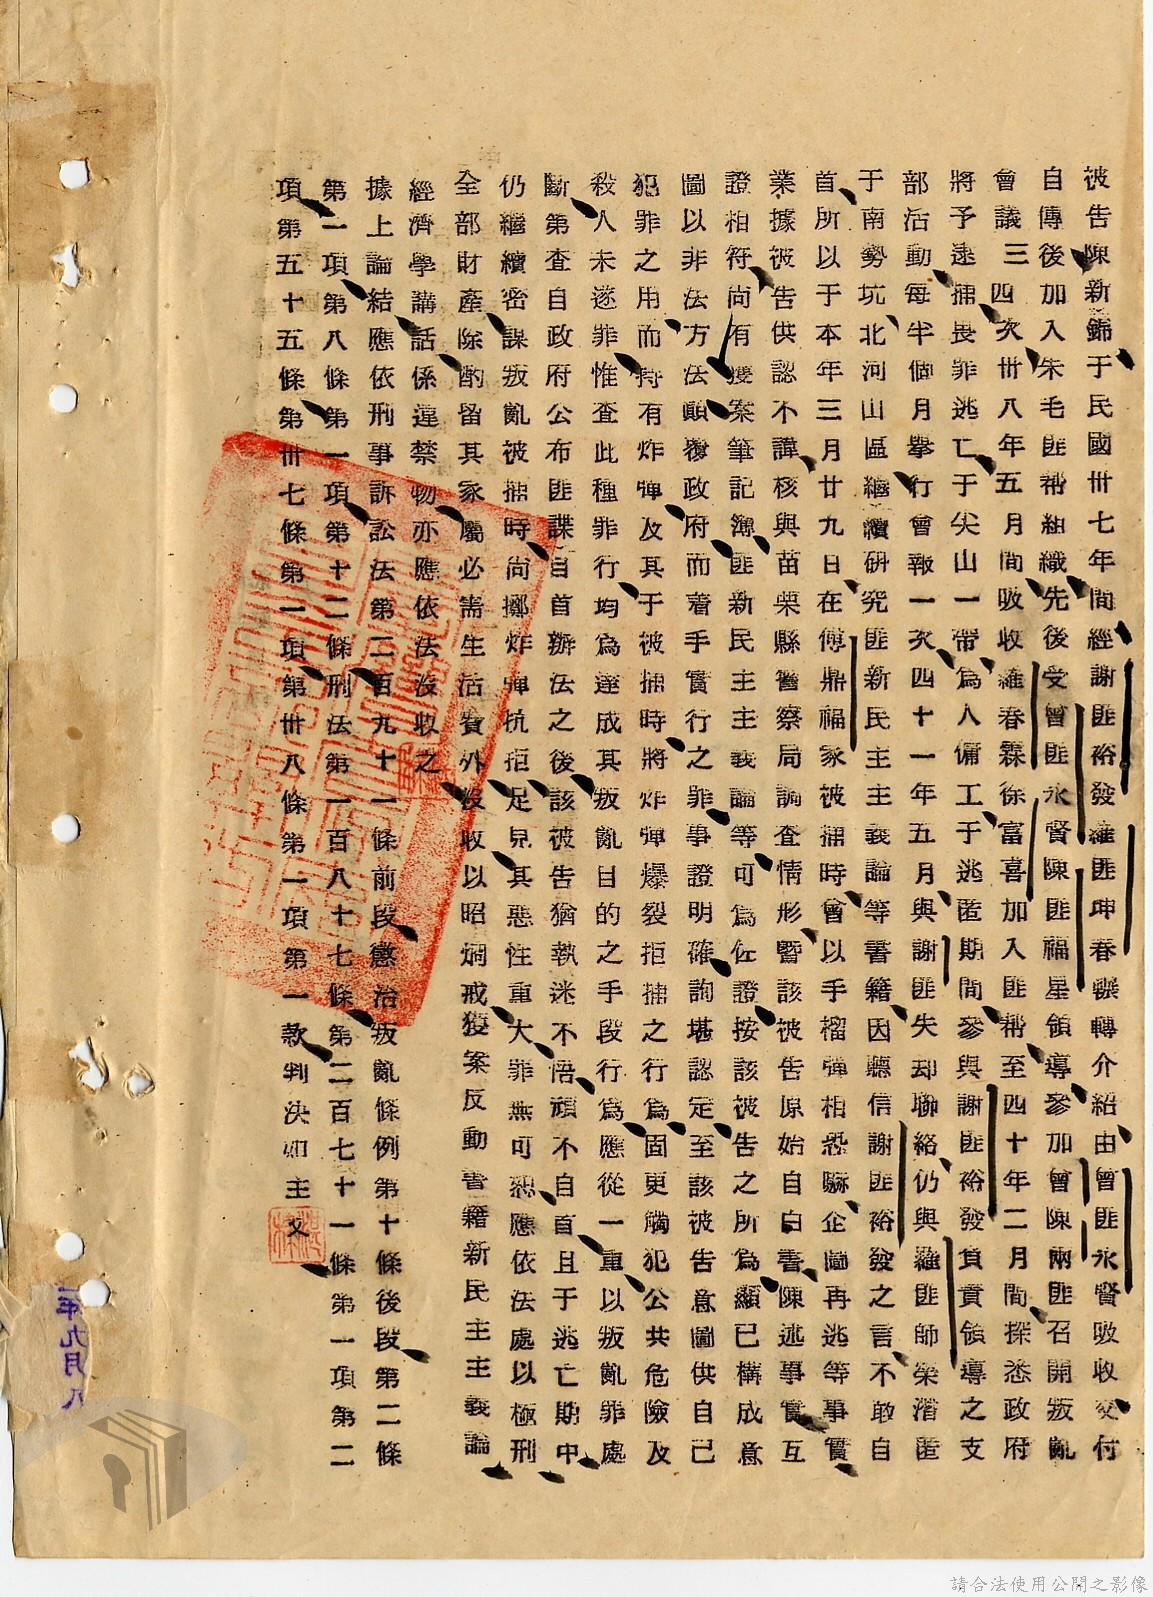 被告陳新錦于民國卅七年間經謝匪裕發羅匪坤春輾轉介紹由曾匪永賢吸收交付
自傳後加入朱毛匪幫組織先後受曾匪永賢陳匪福星領導參加曾陳兩匪召開叛亂
會議三四次卅八年五月間吸收羅春霖徐富喜加入匪幫至四十年二月間探悉政府
將予逮捕畏罪逃亡于尖山一帶為人傭工于逃匿期間參與謝匪裕發負責領導之支
部活動每半個月舉行會報一次四十一年五月與謝匪失却聯絡仍與羅匪師榮潛匿
于南勢坑北河山區繼續研究匪新民主主義論等書籍因聽信謝匪裕發之言不敢自
首所以于本年三月廿九日在傅鼎福家被捕時曾以手榴彈相恐嚇企圖再逃等事實
業據被告供認不諱核與苗栗縣警察局調查情形暨該被告原始自白書陳述事實互
證相符尚有獲案筆記簿匪新民主主義論等可為佐證按該被告之所為顯已構成意
圖以非法方法顛覆政府而著手實行之罪事證明確詢堪認定至該被告意圖供自己
犯罪之用而持有炸彈及其于被捕時將炸彈爆裂拒捕之行為固更觸犯公共危險及
殺人未遂罪惟查此種罪行均為達成其叛亂目的之手段行為應從一重以叛亂罪處
斷第查自政府公布匪諜自首辦法之後該被告猶執迷不悟頑不自首且于逃亡期中
仍繼續密謀叛亂被捕時尚擲炸彈抗拒足見其惡性重大罪無可恕應依法處以極刑
全部財產除酌留其家屬必需生活費外沒收以昭烱戒獲案反動書籍新民主主義論
經濟學講話係違禁物亦應依法沒收之
據上論結應依刑事訴訟法第二百九十一條前段懲治叛亂條例第十條後段第二條
第一項第八條第一項第十二條刑法第一百八十七條第二百七十一條第一項第二
項第五十五條第卅七條第一項第卅八條第一項第一款判決如主文
年九月八
請合法使用公開之影像